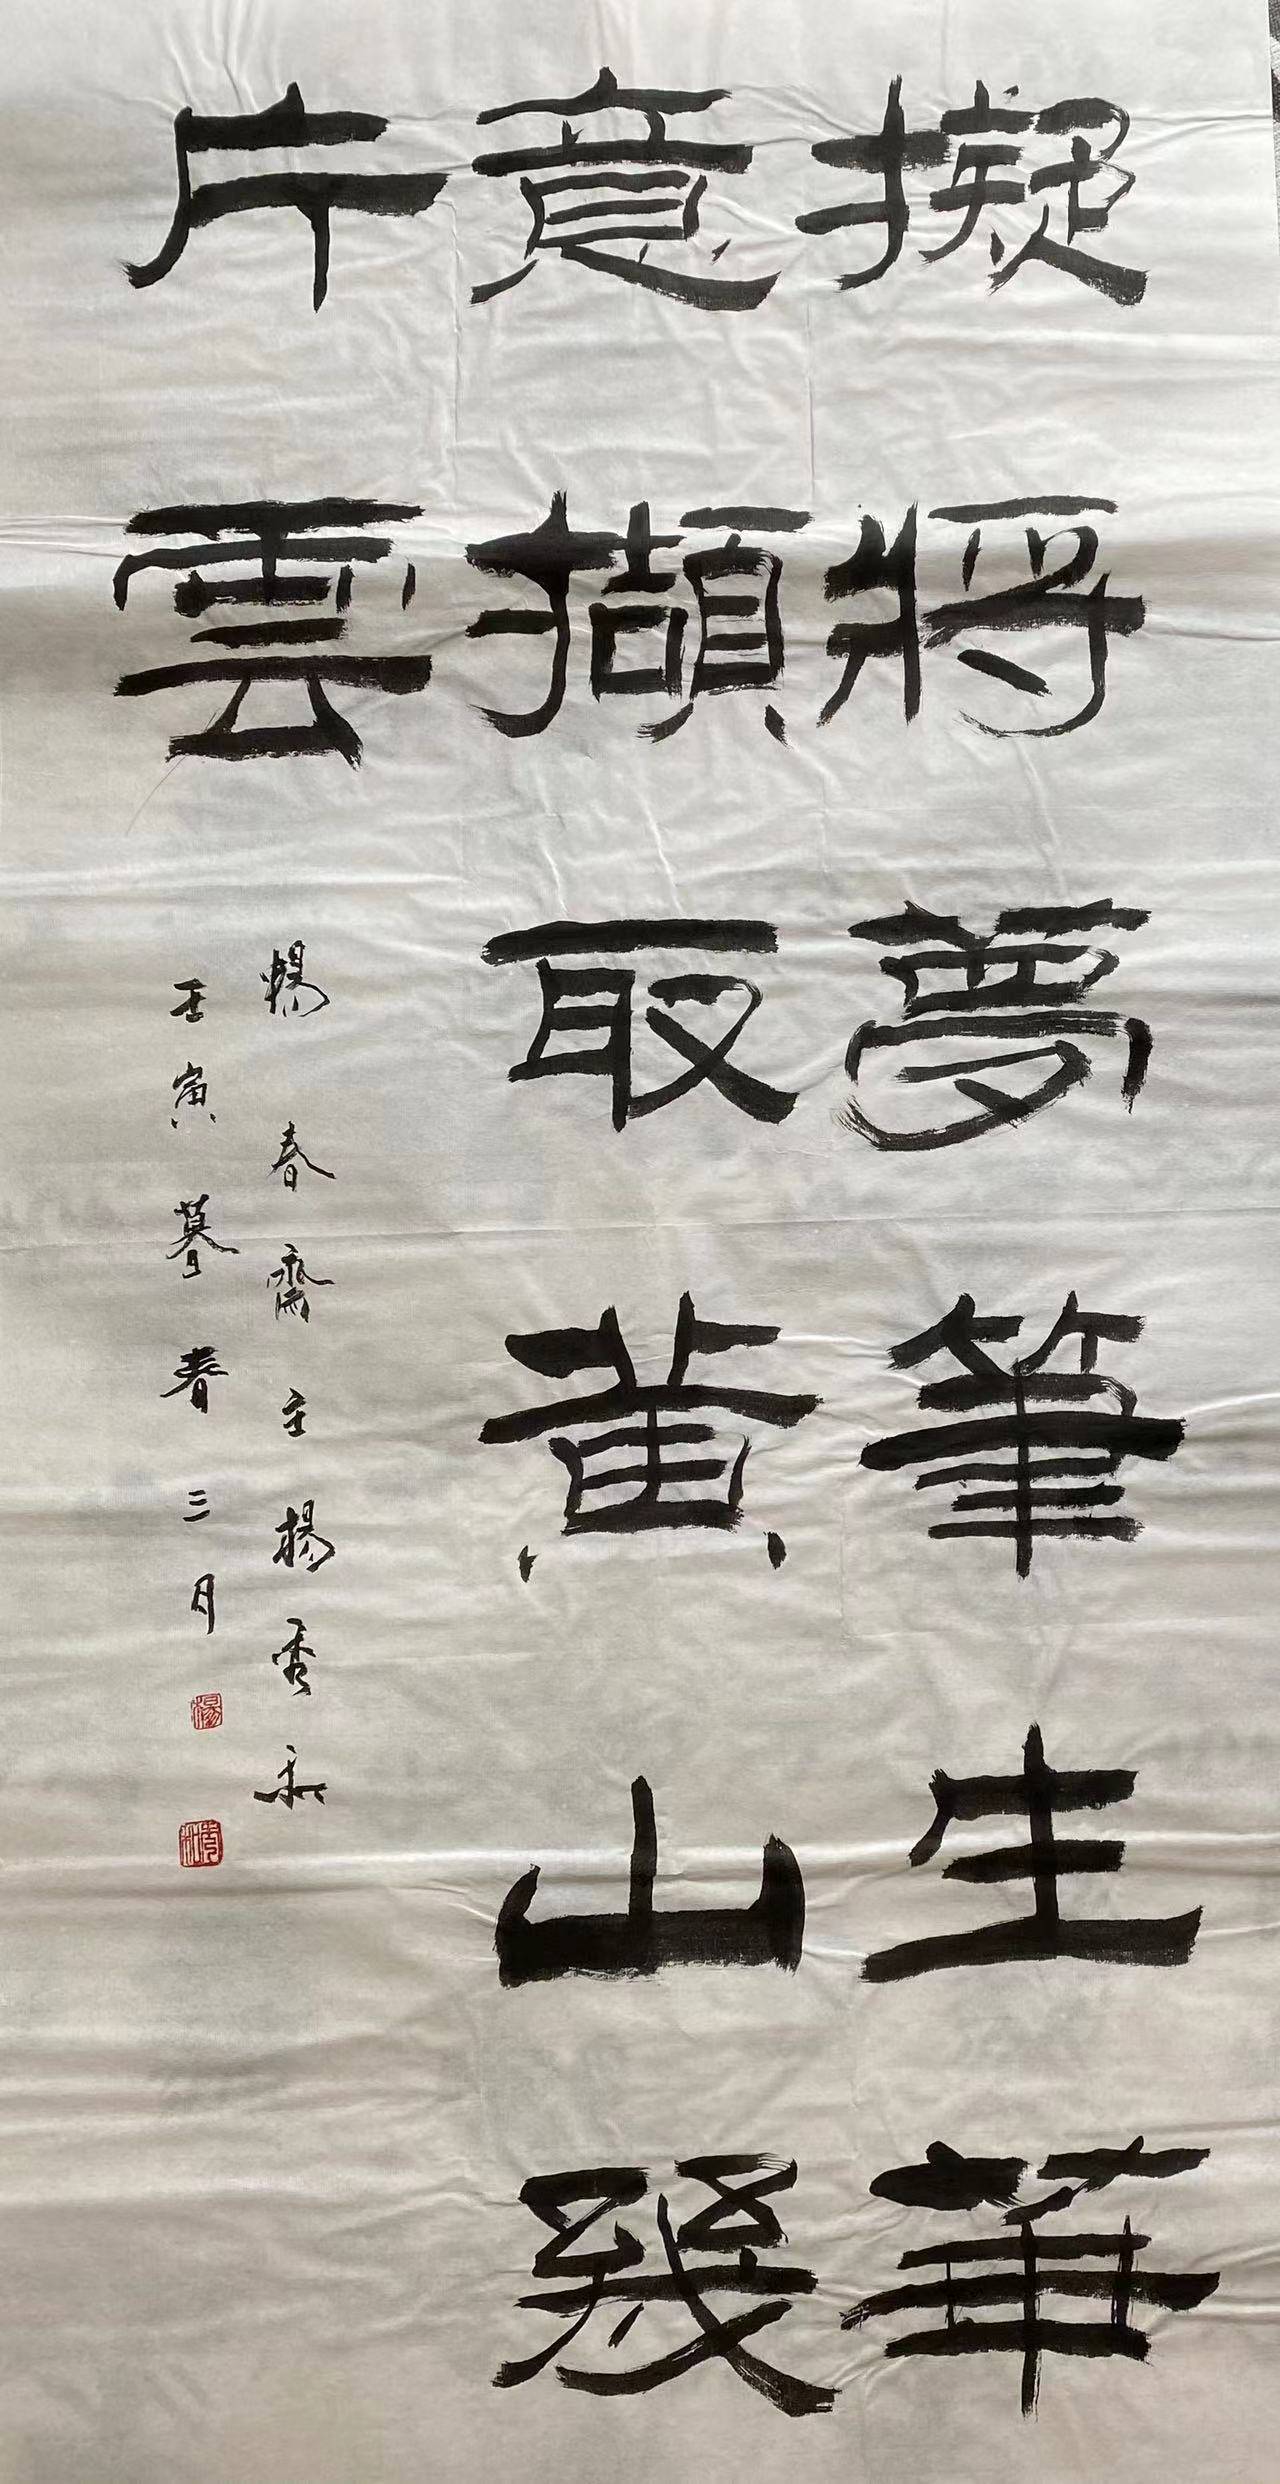 擬將夢筆生華
意擷取黃山幾
片雲
楊春齋主楊秀和
壬寅暮春三月